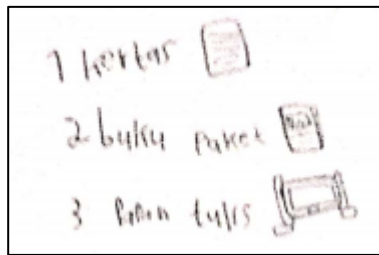 1 kertas
2 buku paket
3 papan tulis